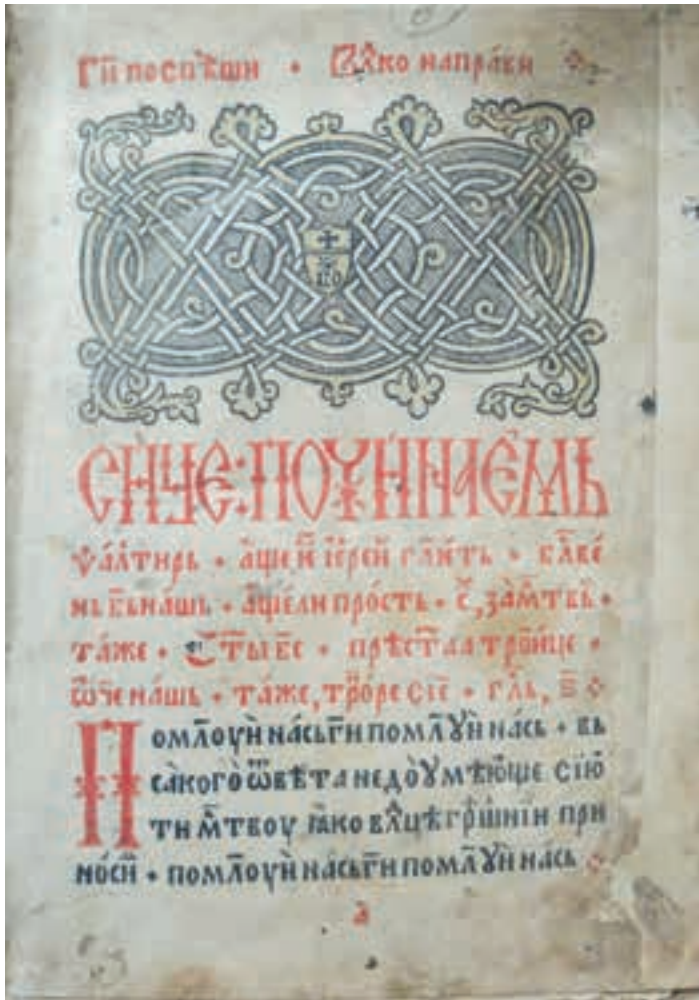 Гй поспѣши • Влⷣко напра́ви
СИ́ЦЕ: ПОЧИ́НАЕМЬ
ѱалти́рь • а́ще и҆ і҆ере́й гл҃и́ть • бл҃ве́
нь бь҃ нашь • а́ще ли про́сть • с҃, за мл҃твь •
та́же • ст҃ы бе҃ • прѣст҃аа трⷪ҇йце •
ѿче на́шь • та́же, трⷪ҇ре сїе • гл҃ь,
Помл҃оуй на́сь гй помл҃ꙋй на́сь • вь
са́кого ѿвѣта недоѹмѣю́ще сїю
ти мл҃твоу ꙗко влⷣцѣ грѣ́шнїи при
но́си • помл҃оуй на́сь гй помл҃ꙋй на́сь
а҃